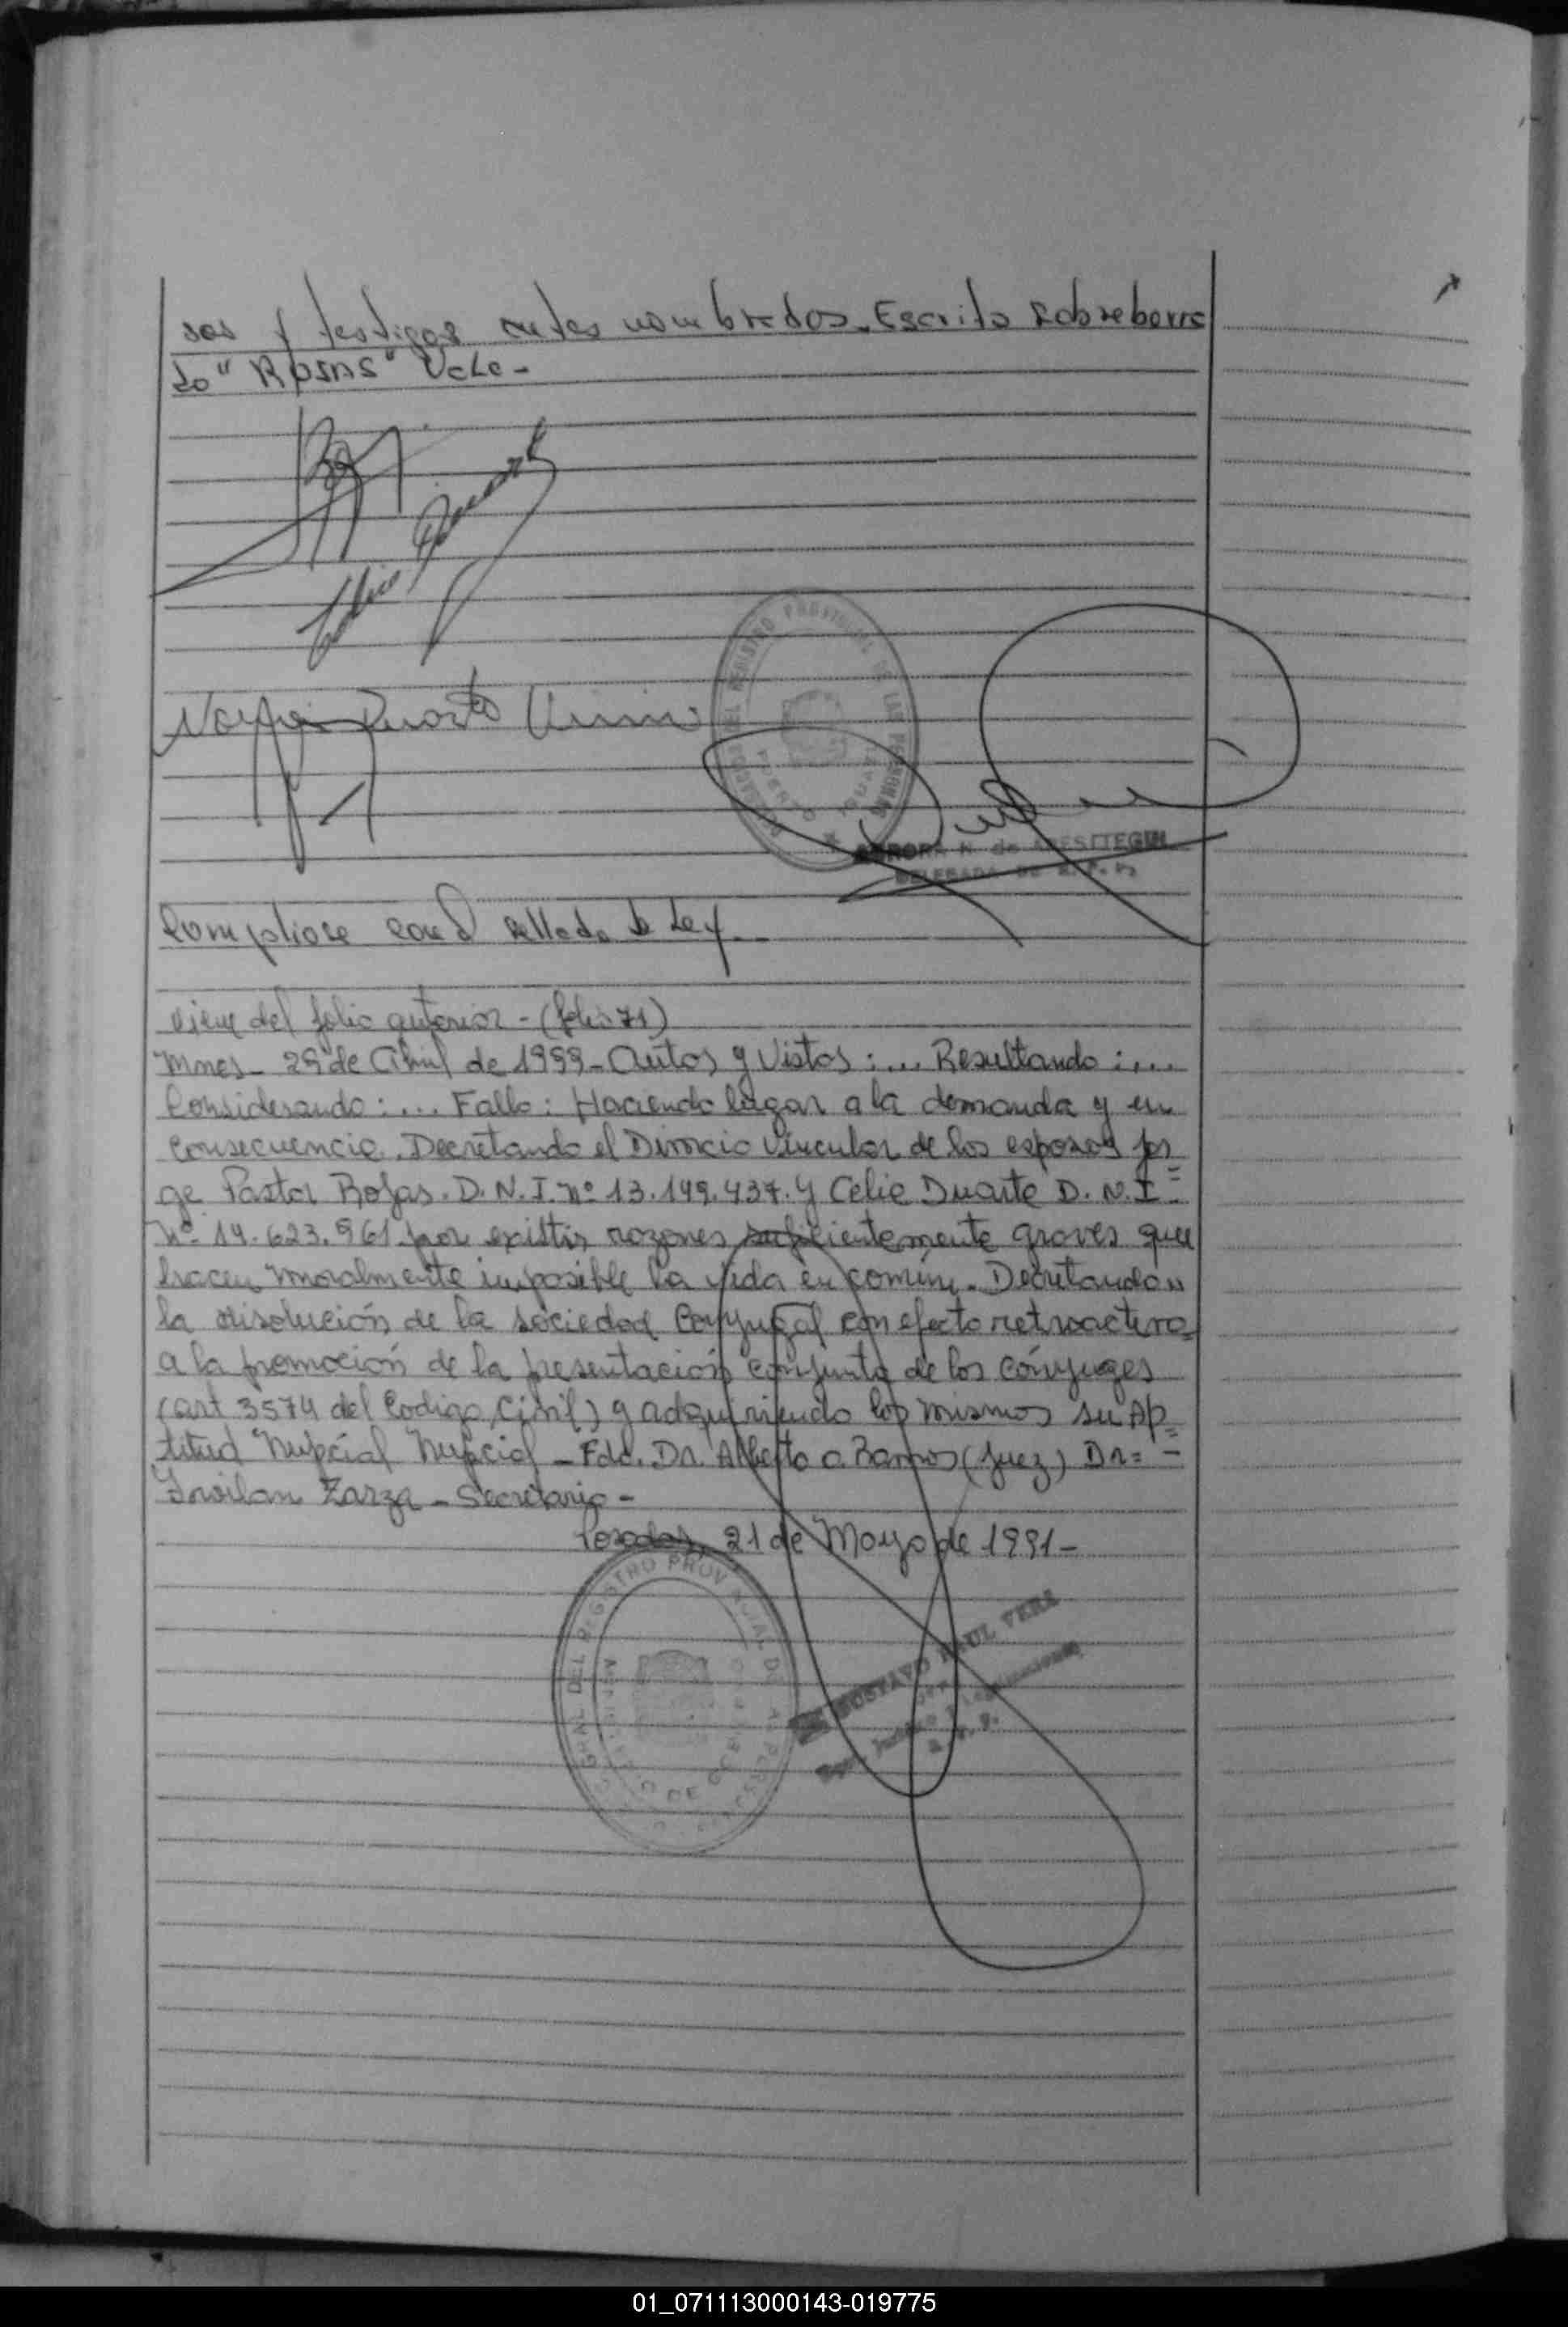 sos y testigos antes nombrados. Escrito sobreborra
do "Rosas" Vale -
Norma Duarte
REGISTRO PROVINCIAL DE LAS PERSONAS
AURORA N. de APESTEGUI
DELEGADA DE R. P. P.
Compliose con el sellado de Ley.
viene del folio anterior - (folio 71)
Mnes - 29 de Abril de 1999 - Autos y Vistos : ... Resultando : ...
Considerando : ... Fallo : Haciendo lugar a la demanda y en
consecuencia. Decretando el Divorcio Vincular de los esposos Jor
ge Pastor Rojas. D. N. I. Nº 13.149.437. y Celia Duarte D. N. I =
Nº 14.623.961 por existir razones suficientemente graves que
hacen moralmente imposible la vida en común. Decretando
la disolución de la sociedad Conyugal con efecto retroactivo
a la promoción de la presentación conjunta de los cónyuges
(art 3574 del Codigo Civil) y adquiriendo los mismos su Ap
titud Nupcial Nupcial - Fdo. Dr. Alberto A. Ramos (Juez) Dr =
Zarza - Secretario -
Posadas, 21 de Mayo de 1991 -
GRAL DEL REGISTRO PROVINCIAL DE LAS PERSONAS
MINISTERIO DE GOBIERNO
GUSTAVO RAUL VERA
01_071113000143-019775